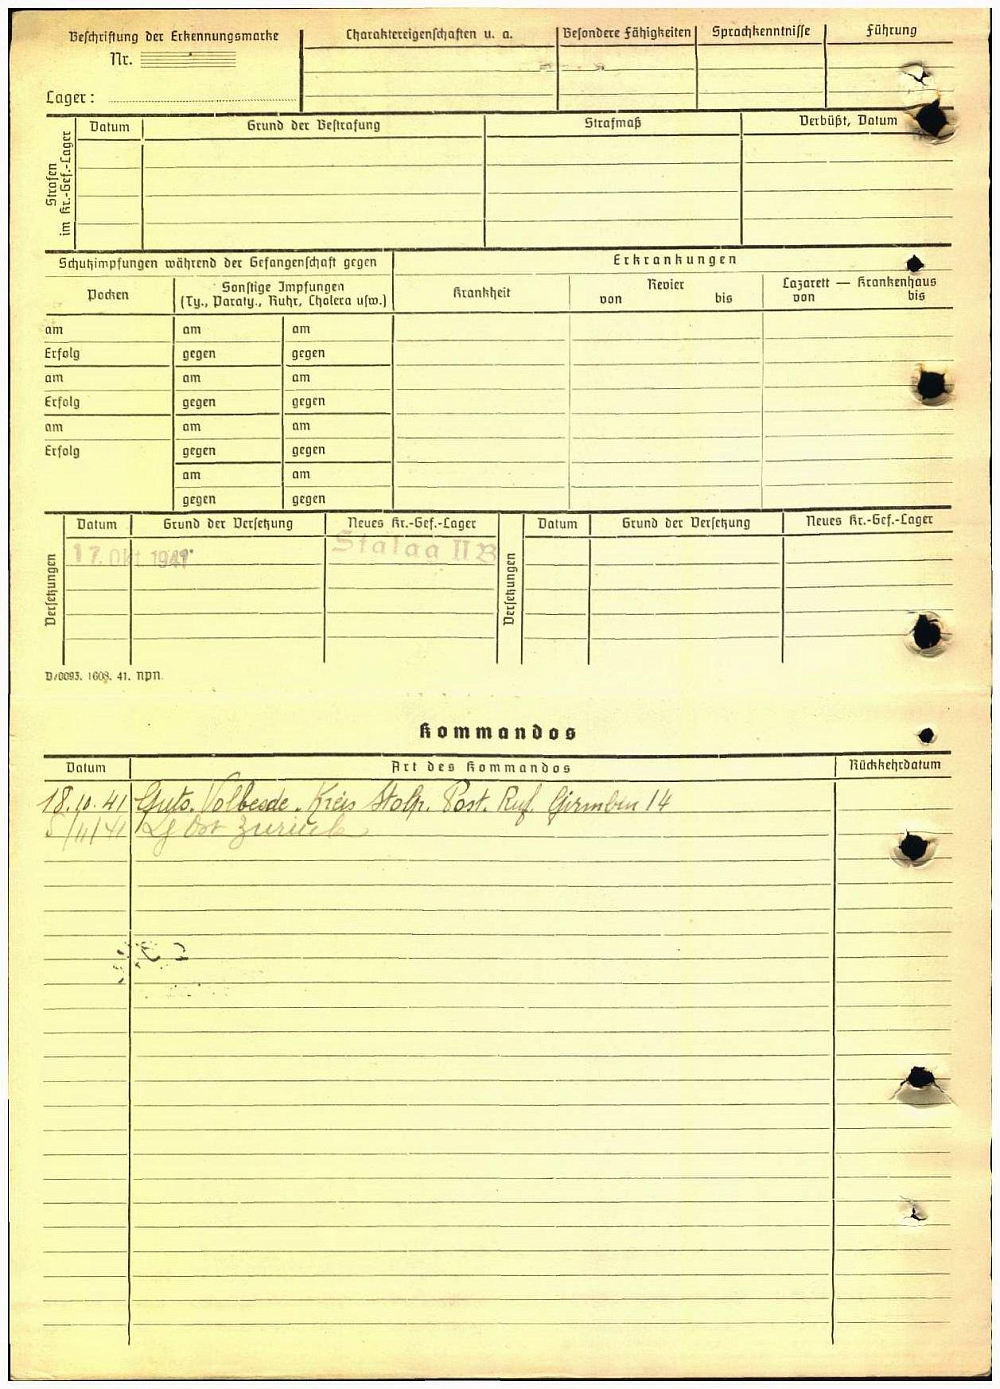 Beschriftung der Erkennungsmarke
Nr.
Lager:
Charaktereigenschaften u. a.
Besondere Fähigkeiten
Sprachkenntnisse
Führung
Strafen im Kr.-Gef.-Lager
Datum
Grund der Bestrafung
Strafmaß
Verbüßt, Datum
Schutzimpfungen während der Gefangenschaft gegen
Erkrankungen
Pocken
Sonstige Impfungen
(Ty., Paraty., Ruhr, Cholera usw.)
Krankheit
Revier
von bis
Lazarett — Krankenhaus
von bis
am am am
Erfolg gegen gegen
am am am
Erfolg gegen gegen
am am am
Erfolg gegen gegen
am am
gegen gegen
Versetzungen
Datum Grund der Versetzung Neues Kr.-Gef.-Lager
17. Okt 1941 Stalag II B
Versetzungen
Datum Grund der Versetzung Neues Kr.-Gef.-Lager
D/0093. 1608. 41. npn.
Kommandos
Datum Art des Kommandos Rückkehrdatum
18.10.41 Guts. Kreis Stolp. Post. Ruf. 14
5/11/41 Ost zurück